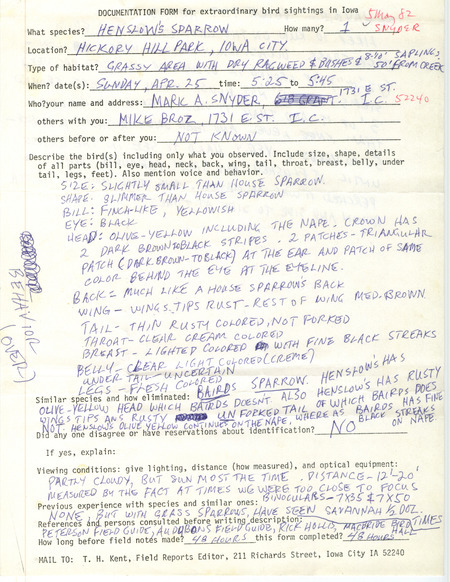 DOCUMENTATION FORM for extraordinary bird sightings in Iowa
5 May 82
What species? HENSLOW'S SPARROW How many? 1 SNYDER
Location? HICKORY HILL PARK, IOWA CITY
Type of habitat? GRASSY AREA WITH DRY RAGWEED & BUSHES & SAPLINGS 50' FROM CREEK
When? date(s): SUNDAY, APR. 25 time: 5:25 to 5:45
Who? your name and address: MARK A. SNYDER, 1731 E ST. I.C. 52240
others with you: MIKE BROZ, 1731 E ST. I.C.
others before or after you: NOT KNOWN
Describe the bird(s) including only what you observed. Include size, shape, details
of all parts (bill, eye, head, neck, back, wing, tail, throat, breast, belly, under
tail, legs, feet). Also mention voice and behavior.
SIZE: SLIGHTLY SMALL THAN HOUSE SPARROW.
SHAPE: SLIMMER THAN HOUSE SPARROW
BILL: FINCH-LIKE, YELLOWISH
EYE: BLACK
HEAD: OLIVE-YELLOW INCLUDING THE NAPE. CROWN HAS
2 DARK BROWN TO BLACK STRIPES. 2 PATCHES-TRIANGULAR
PATCH (DARK BROWN-TO BLACK) AT THE EAR AND PATCH OF SAME
COLOR BEHIND THE EYE AT THE EYELINE.
BACK - MUCH LIKE A HOUSE SPARROWS BACK
WING - WINGS TIPS RUST - REST OF WING MED. BROWN
TAIL - THIN RUSTY COLORED, NOT FORKED
THROAT - CLEAR CREAM COLORED
BREAST - LIGHTED COLORED WITH FINE BLACK STREAKS
BELLY - CLEAR LIGHT COLORED (CREME)
UNDER TAIL - UNCERTAIN
LEGS - FLESH COLORED
BEHAVIOR
Similar species and how eliminated: BAIRDS SPARROW. HENSLOW'S HAS
OLIVE-YELLOW HEAD WHICH BAIRDS DOESNT. ALSO HENSLOW'S HAS RUSTY
WINGS TIPS AND RUSTY UNFORKED TAIL OF WHICH BAIRDS DOES
NOT. HENSLOWS OLIVE YELLOW CONTINUES ON THE NAPE, WHEREAS BAIRDS HAS FINE BLACK STREAKS ON NAPE
Did any one disagree or have reservations about identification? NO
If yes, explain:
Viewing conditions: give lighting, distance (how measured), and optical equipment:
PARTLY CLOUDY, BUT SUN MOST THE TIME. DISTANCE - 12'-20'
MEASURED BY THE FACT AT TIMES WE WERE TOO CLOSE TO FOCUS.
BINOCULARS - 7X35 & 7X50
Previous experience with species and similar ones:
NONE, BUT WITH GRASS SPARROWS, HAVE SEEN SAVANNAH ½ DOZ. TIMES
References and persons consulted before writing description:
PETERSON FIELD GUIDE, AUDUBONS FIELD GUIDE, RICK HOLLIS, MACBRIDE BIRD HALL
How long before field notes made? 48 HOURS this form completed? 48 HOURS
MAIL TO: T. H. Kent, Field Reports Editor, 211 Richards Street, Iowa City IA 52240